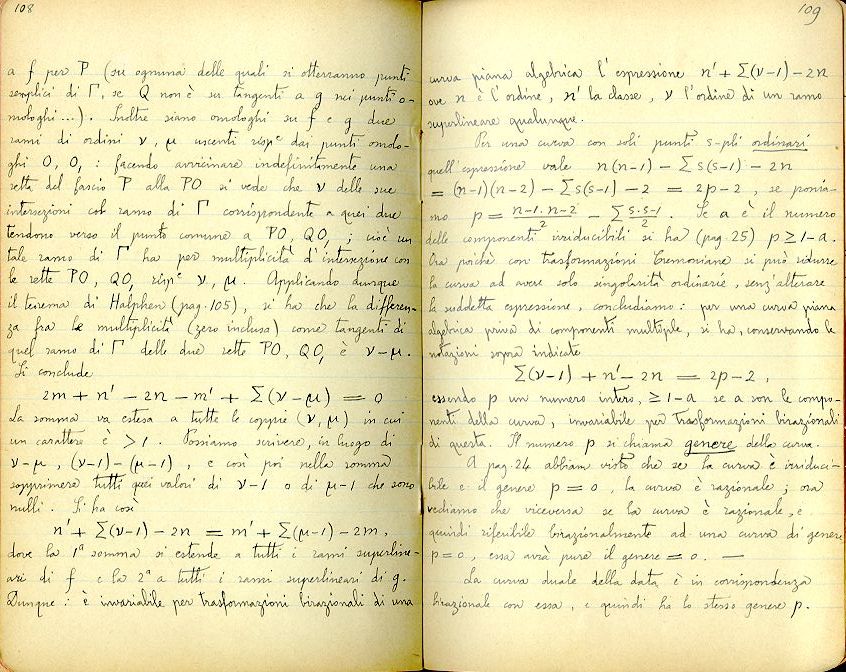 108
a f per P (su ognuna delle quali si otterranno punti
semplici di Γ, se Q non è su tangenti a g nei punti o-
mologhi...). Inoltre siano omologhi su f e g due
rami di ordini ν, μ uscenti risp.e dai punti omolo-
ghi O, O₁ : facendo avvicinare indefinitamente una
retta del fascio P alla PO si vede che ν delle sue
intersezioni col ramo di Γ corrispondente a quei due
tendono verso il punto comune a PO, QO₁ ; cioè un
tale ramo di Γ ha per multiplicità d'intersezione con
le rette PO, QO₁ risp.e ν, μ. Applicando dunque
il teorema di Halphen (pag. 105), si ha che la differen-
za fra le multiplicità (zero inclusa) come tangenti di
quel ramo di Γ delle due rette PO, QO₁ è ν-μ.
Si conclude
2m + n' - 2n - m' + Σ(ν-μ) = 0
La somma va estesa a tutte le coppie (ν, μ) in cui
un carattere è > 1. Possiamo scrivere, in luogo di
ν-μ, (ν-1)-(μ-1), e così poi nella somma
sopprimere tutti quei valori di ν-1 o di μ-1 che sono
nulli. Si ha così
n' + Σ(ν-1) - 2n = m' + Σ(μ-1) - 2m,
dove la 1ª somma si estende a tutti i rami superline-
ari di f e la 2ª a tutti i rami superlineari di g.
Dunque: è invariabile per trasformazioni birazionali di una
109
curva piana algebrica l'espressione n' + Σ(ν-1) - 2n
ove n è l'ordine, n' la classe, ν l'ordine di un ramo
superlineare qualunque.
Per una curva con soli punti s-pli ordinari
quell'espressione vale n(n-1) - Σ s(s-1) - 2n
= (n-1)(n-2) - Σ s(s-1) - 2 = 2p-2, se ponia-
mo p = n-1.n-2/2 - Σ s.s-1/2. Se a è il numero
delle componenti irriducibili si ha (pag. 25) p ≥ 1-a.
Ora poichè con trasformazioni Cremoniane si può ridurre
la curva ad avere solo singolarità ordinarie, senz'alterare
la suddetta espressione, concludiamo: per una curva piana
algebrica priva di componenti multiple, si ha, conservando le
notazioni sopra indicate
Σ(ν-1) + n' - 2n = 2p-2,
essendo p un numero intero, ≥ 1-a se a son le compo-
nenti della curva, invariabile per trasformazioni birazionali
di questa. Il numero p si chiama genere della curva.
A pag. 24 abbiam visto che se la curva è irriduci-
bile e il genere p=0, la curva è razionale; ora
vediamo che viceversa se la curva è razionale, e
quindi riferibile birazionalmente ad una curva di genere
p=0, essa avrà pure il genere = 0. —
La curva duale della data è in corrispondenza
birazionale con essa, e quindi ha lo stesso genere p.